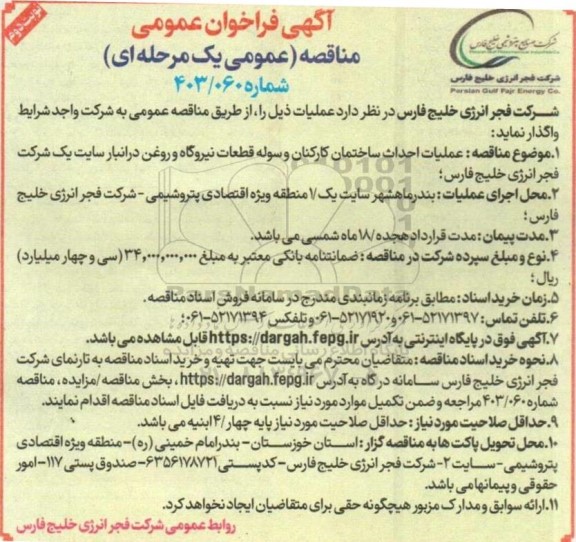 نوبت دوم
آگهی فراخوان عمومی
مناقصه (عمومی یک مرحله ای)
شماره ۴۰۳/۰۶۰
شرکت صنایع پتروشیمی خلیج فارس
شرکت فجر انرژی خلیج فارس
Persian Gulf Fajr Energy Co.
شرکت فجر انرژی خلیج فارس در نظر دارد عملیات ذیل را، از طریق مناقصه عمومی به شرکت واجد شرایط
واگذار نماید:
۱.موضوع مناقصه : عملیات احداث ساختمان کارکنان و سوله قطعات نیروگاه و روغن در انبار سایت یک شرکت
فجر انرژی خلیج فارس؛
۲.محل اجرای عملیات : بندر ماهشهر سایت یک/۱ منطقه ویژه اقتصادی پتروشیمی - شرکت فجر انرژی خلیج
فارس؛
۳.مدت پیمان : مدت قرارداد هجده/۱۸ ماه شمسی می باشد.
۴.نوع و مبلغ سپرده شرکت در مناقصه : ضمانتنامه بانکی معتبر به مبلغ ۳۴,۰۰۰,۰۰۰,۰۰۰ (سی و چهار میلیارد)
ریال؛
۵.زمان خرید اسناد : مطابق برنامه زمانبندی مندرج در سامانه فروش اسناد مناقصه.
۶.تلفن تماس : ۵۲۱۷۱۳۹۷-۰۶۱ و ۵۲۱۷۱۹۲۰-۰۶۱ و تلفکس ۵۲۱۷۱۳۹۴-۰۶۱؛
۷.آگهی فوق در پایگاه اینترنتی به آدرس https://dargah.fepg.ir قابل مشاهده می باشد.
۸.نحوه خرید اسناد مناقصه : متقاضیان محترم می بایست جهت تهیه و خرید اسناد مناقصه به تارنمای شرکت
فجر انرژی خلیج فارس سامانه درگاه به آدرس https://dargah.fepg.ir ، بخش مناقصه /مزایده ، مناقصه
شماره ۴۰۳/۰۶۰ مراجعه و ضمن تکمیل موارد مورد نیاز نسبت به دریافت فایل اسناد مناقصه اقدام نمایند.
۹.حداقل صلاحیت مورد نیاز : حداقل صلاحیت مورد نیاز پایه چهار/۴ ابنیه می باشد.
۱۰.محل تحویل پاکت ها به مناقصه گزار : استان خوزستان - بندر امام خمینی (ره) - منطقه ویژه اقتصادی
پتروشیمی - سایت ۲ - شرکت فجر انرژی خلیج فارس - کدپستی ۶۳۵۶۱۷۸۷۲۱ - صندوق پستی ۱۱۷ - امور
حقوقی و پیمانها می باشد.
۱۱.ارائه سوابق و مدارک مزبور هیچگونه حقی برای متقاضیان ایجاد نخواهد کرد.
روابط عمومی شرکت فجر انرژی خلیج فارس